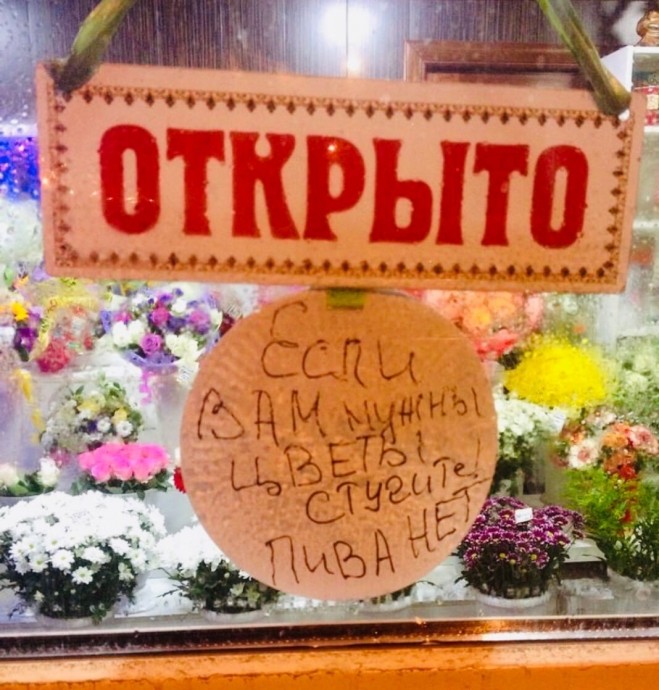 ОТКРЫТО
Если
ВАМ нужны
ЦВЕТЫ
стучите!
ПИВА НЕТ